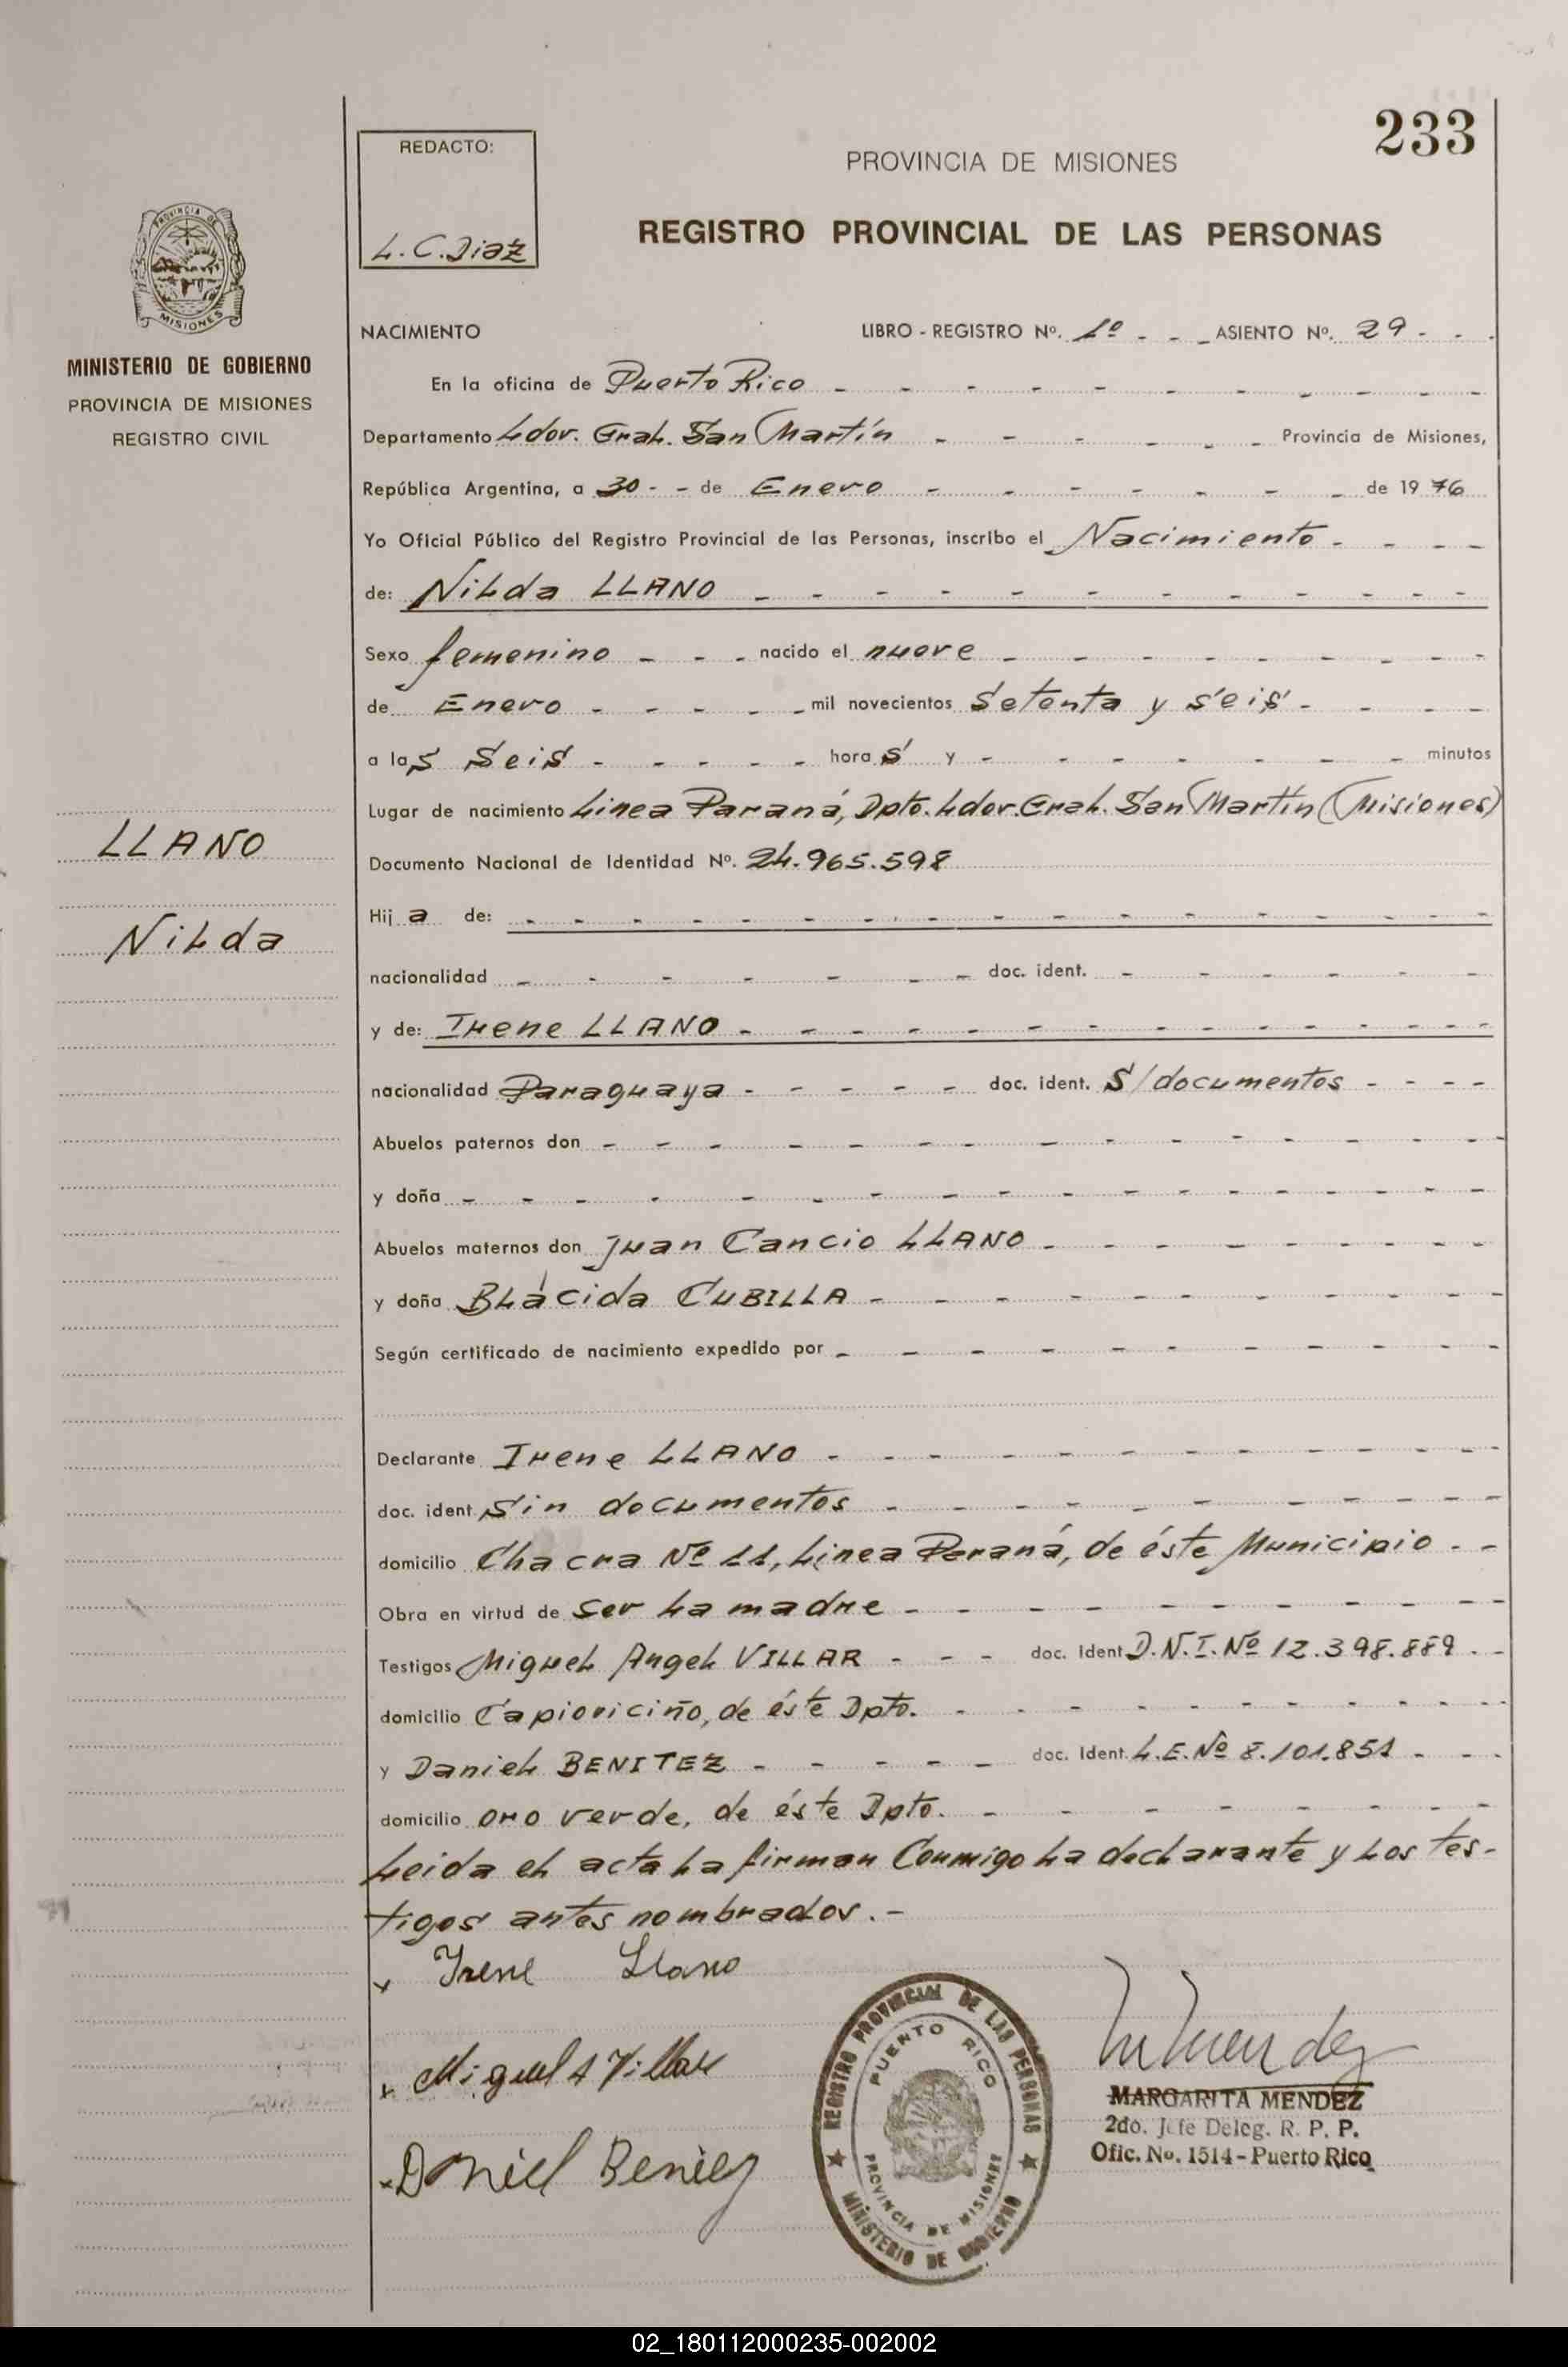 233
REDACTO:
L.C. Diaz
PROVINCIA DE MISIONES
REGISTRO PROVINCIAL DE LAS PERSONAS
PROVINCIA DE
MISIONES
MINISTERIO DE GOBIERNO
PROVINCIA DE MISIONES
REGISTRO CIVIL
LLANO
Nilda
NACIMIENTO LIBRO - REGISTRO Nº. 1º - - - ASIENTO Nº. 29 - - -
En la oficina de Puerto Rico - - - - - - - - - - -
Departamento Ldor. Gral. San Martín - - - - - - Provincia de Misiones,
República Argentina, a 30 - - de Enero - - - - - - - de 1976
Yo Oficial Público del Registro Provincial de las Personas, inscribo el Nacimiento - - - -
de: Nilda LLANO - - - - - - - - - - - -
Sexo femenino - - - nacido el nueve - - - - - - - - -
de Enero - - - - - mil novecientos Setenta y seis - - - -
a las Seis - - - - - horas y - - - - - - - minutos
Lugar de nacimiento Linea Paraná, Dpto. Ldor. Gral. San Martín (Misiones)
Documento Nacional de Identidad Nº. 24.965.598
Hija de: - - - - - - - - - - - - - - - -
nacionalidad - - - - - - - doc. ident. - - - - - -
y de: Irene LLANO - - - - - - - - - - - - -
nacionalidad Paraguaya - - - - - doc. ident. S/documentos - - - -
Abuelos paternos don - - - - - - - - - - - - - -
y doña - - - - - - - - - - - - - - - - -
Abuelos maternos don Juan Cancio LLANO - - - - - - - - -
y doña Blácida CUBILLA - - - - - - - - - -
Según certificado de nacimiento expedido por - - - - - - - - - -
Declarante Irene LLANO - - - - - - - - - - - -
doc. ident. Sin documentos - - - - - - - - - -
domicilio Chacra Nº 11, Linea Paraná, de éste Municipio - -
Obra en virtud de ser la madre - - - - - - - - - -
Testigos Miguel Angel VILLAR - - - doc. Ident. D.N.I. Nº 12.398.889 - -
domicilio Capioviciño, de éste Dpto. - - - - - - - - - -
y Daniel BENITEZ - - - - - doc. Ident. L.E. Nº 8.101.851 - - -
domicilio oro verde, de éste Dpto. - - - - - - - -
Leida el acta la firman Conmigo la declarante y los tes-
tigos antes nombrados.-
x Irene Llano
x Miguel A Villar
x Daniel Beniez
REGISTRO PROVINCIAL DE LAS PERSONAS
PUERTO RICO
PROVINCIA DE MISIONES
MINISTERIO DE GOBIERNO
MMendez
MARGARITA MENDEZ
2do. Jefe Deleg. R. P. P.
Ofic. No. 1514 - Puerto Rico
02_180112000235-002002